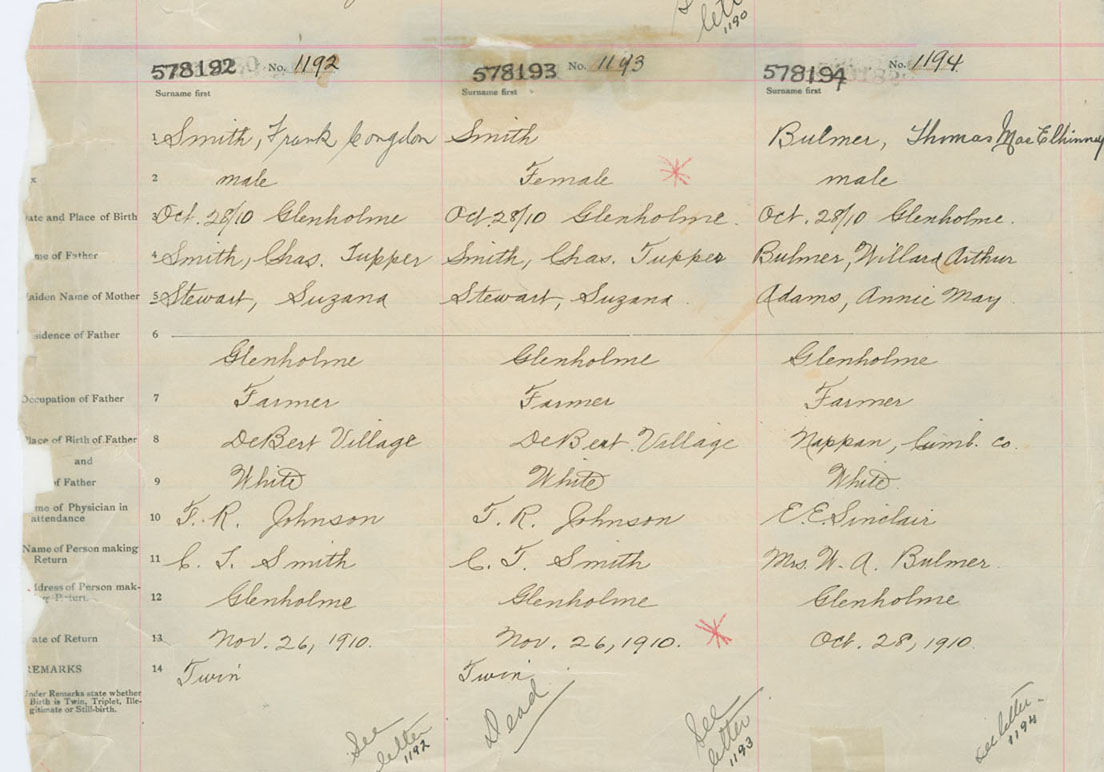 letter
1190
578192 No. 1192 578193 No. 1193 578194 No. 1194
Surname first Surname first Surname first
1 Smith, Frank Congdon Smith Bulmer, Thomas MacElhinney
x 2 male Female male
ate and Place of Birth 3 Oct. 28/10 Glenholme Oct. 28/10 Glenholme. Oct. 28/10 Glenholme.
me of Father 4 Smith, Chas. Tupper Smith, Chas. Tupper Bulmer, Willard Arthur
aiden Name of Mother 5 Stewart, Suzana Stewart, Suzana. Adams, Annie May
sidence of Father 6
Glenholme Glenholme Glenholme
Occupation of Father 7 Farmer Farmer Farmer
lace of Birth of Father 8 DeBert Village DeBert Village Nappan, Cumb. Co.
and
of Father 9 White White White.
me of Physician in
attendance 10 F. R. Johnson F. R. Johnson E. E. Sinclair
Name of Person making
Return 11 C. T. Smith C. T. Smith Mrs. W. A. Bulmer.
ddress of Person mak-
g Return. 12 Glenholme Glenholme Glenholme
ate of Return 13 Nov. 26, 1910. Nov. 26, 1910. Oct. 28, 1910.
REMARKS 14 Twin Twin
Under Remarks state whether
Birth is Twin, Triplet, Ille-
gitimate or Still-birth.
See letter 1192 Dead See letter 1193 see letter 1194